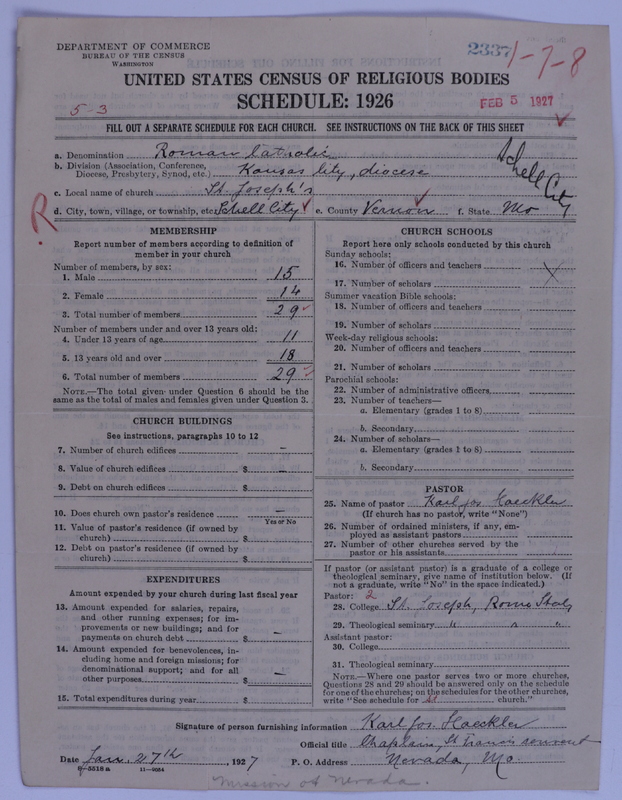 DEPARTMENT OF COMMERCE
BUREAU OF THE CENSUS
WASHINGTON
2337
1-7-8
UNITED STATES CENSUS OF RELIGIOUS BODIES
SCHEDULE: 1926
5-3
FEB 5 1927
FILL OUT A SEPARATE SCHEDULE FOR EACH CHURCH. SEE INSTRUCTIONS ON THE BACK OF THIS SHEET
a. Denomination Roman Catholic
b. Division (Association, Conference, Diocese, Presbytery, Synod, etc.) Kansas City, diocese
Schell City
c. Local name of church St. Joseph's
R
d. City, town, village, or township, etc. Schell City e. County Vernon f. State Mo
MEMBERSHIP
Report number of members according to definition of
member in your church
Number of members, by sex:
1. Male 15
2. Female 14
3. Total number of members 29
Number of members under and over 13 years old:
4. Under 13 years of age 11
5. 13 years old and over 18
6. Total number of members 29
NOTE.—The total given under Question 6 should be
same as the total of males and females given under Question 3.
CHURCH BUILDINGS
See instructions, paragraphs 10 to 12
7. Number of church edifices –
8. Value of church edifices $ –
9. Debt on church edifices $
10. Does church own pastor's residence –
Yes or No
11. Value of pastor's residence (if owned by
church) $
12. Debt on pastor's residence (if owned by
church) $
EXPENDITURES
Amount expended by your church during last fiscal year
13. Amount expended for salaries, repairs,
and other running expenses; for im-
provements or new buildings; and for
payments on church debt $ –
14. Amount expended for benevolences, in-
cluding home and foreign missions; for
denominational support; and for all
other purposes $ –
15. Total expenditures during year $
CHURCH SCHOOLS
Report here only schools conducted by this church
Sunday schools:
16. Number of officers and teachers
17. Number of scholars
Summer vacation Bible schools:
18. Number of officers and teachers
19. Number of scholars
Week-day religious schools:
20. Number of officers and teachers
21. Number of scholars
Parochial schools:
22. Number of administrative officers
23. Number of teachers—
a. Elementary (grades 1 to 8)
b. Secondary
24. Number of scholars—
a. Elementary (grades 1 to 8)
b. Secondary
PASTOR
25. Name of pastor Karl Jos. Haeckler
(If church has no pastor, write "None")
26. Number of ordained ministers, if any, em-
ployed as assistant pastors
27. Number of other churches served by the
pastor or his assistants
If pastor (or assistant pastor) is a graduate of a college or
theological seminary, give name of institution below. (If
not a graduate, write "No" in the space indicated.)
Pastor: 2
28. College St. Joseph, Rome Italy
29. Theological seminary " " "
Assistant pastor:
30. College
31. Theological seminary
NOTE.—Where one pastor serves two or more churches,
Questions 28 and 29 should be answered only on the schedule
for one of the churches; on the schedules for the other churches,
write "See schedule for church."
Signature of person furnishing information Karl Jos. Haeckler
Official title Chaplain, St Francis convent
Date Jan. 27th, 1927 P. O. Address Nevada, Mo.
8-5518 a 11-9554
Mission of Nevada.